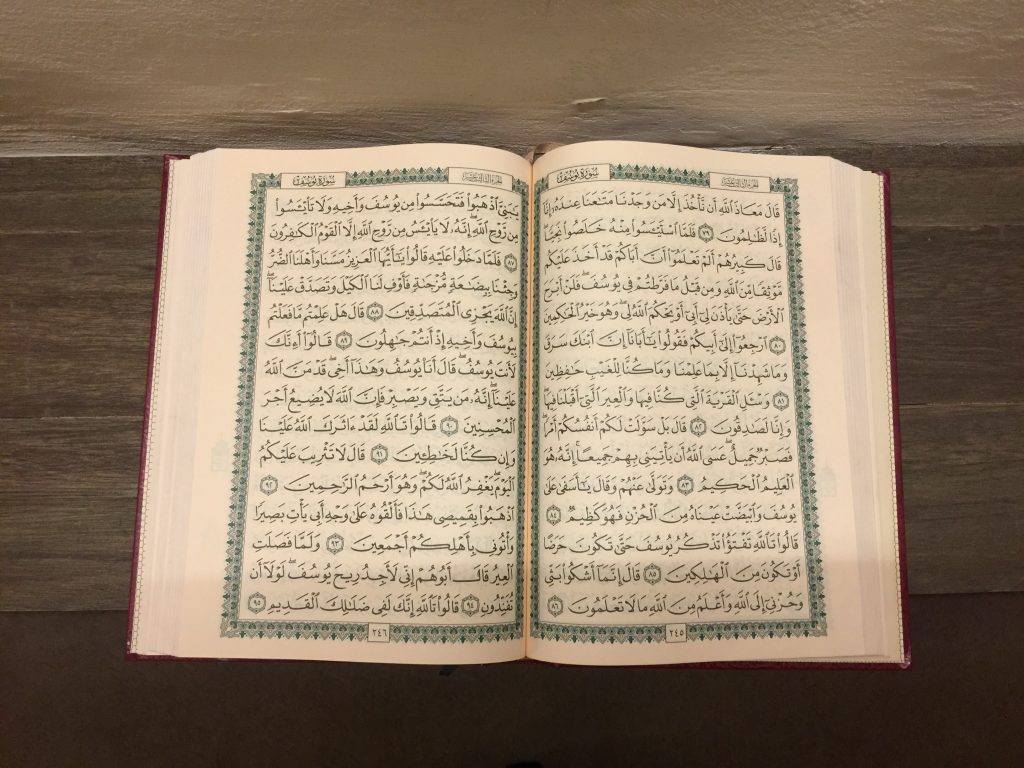 الجزء الثالث عشر
سُورَةُ يُوسُفَ
قَالَ مَعَاذَ ٱللَّهِ أَن نَّأْخُذَ إِلَّا مَن وَجَدْنَا مَتَٰعَنَا عِندَهُۥٓ إِنَّآ
إِذًا لَّظَٰلِمُونَ ٧٩ فَلَمَّا ٱسْتَيْـَٔسُوا۟ مِنْهُ خَلَصُوا۟ نَجِيًّا ۖ
قَالَ كَبِيرُهُمْ أَلَمْ تَعْلَمُوٓا۟ أَنَّ أَبَاكُمْ قَدْ أَخَذَ عَلَيْكُم
مَّوْثِقًا مِّنَ ٱللَّهِ وَمِن قَبْلُ مَا فَرَّطتُمْ فِى يُوسُفَ ۖ فَلَنْ أَبْرَحَ
ٱلْأَرْضَ حَتَّىٰ يَأْذَنَ لِىٓ أَبِىٓ أَوْ يَحْكُمَ ٱللَّهُ لِى ۖ وَهُوَ خَيْرُ ٱلْحَٰكِمِينَ
٨٠ ٱرْجِعُوٓا۟ إِلَىٰٓ أَبِيكُمْ فَقُولُوا۟ يَٰٓأَبَانَآ إِنَّ ٱبْنَكَ سَرَقَ
وَمَا شَهِدْنَآ إِلَّا بِمَا عَلِمْنَا وَمَا كُنَّا لِلْغَيْبِ حَٰفِظِينَ
٨١ وَسْـَٔلِ ٱلْقَرْيَةَ ٱلَّتِى كُنَّا فِيهَا وَٱلْعِيرَ ٱلَّتِىٓ أَقْبَلْنَا فِيهَا ۖ
وَإِنَّا لَصَٰدِقُونَ ٨٢ قَالَ بَلْ سَوَّلَتْ لَكُمْ أَنفُسُكُمْ أَمْرًا ۖ
فَصَبْرٌ جَمِيلٌ ۖ عَسَى ٱللَّهُ أَن يَأْتِيَنِى بِهِمْ جَمِيعًا ۚ إِنَّهُۥ هُوَ
ٱلْعَلِيمُ ٱلْحَكِيمُ ٨٣ وَتَوَلَّىٰ عَنْهُمْ وَقَالَ يَٰٓأَسَفَىٰ عَلَىٰ
يُوسُفَ وَٱبْيَضَّتْ عَيْنَاهُ مِنَ ٱلْحُزْنِ فَهُوَ كَظِيمٌ ٨٤
قَالُوا۟ تَٱللَّهِ تَفْتَؤُا۟ تَذْكُرُ يُوسُفَ حَتَّىٰ تَكُونَ حَرَضًا
أَوْ تَكُونَ مِنَ ٱلْهَٰلِكِينَ ٨٥ قَالَ إِنَّمَآ أَشْكُوا۟ بَثِّى
وَحُزْنِىٓ إِلَى ٱللَّهِ وَأَعْلَمُ مِنَ ٱللَّهِ مَا لَا تَعْلَمُونَ ٨٦
٢٤٥
الجزء الثالث عشر
سُورَةُ يُوسُفَ
يَٰبَنِىَّ ٱذْهَبُوا۟ فَتَحَسَّسُوا۟ مِن يُوسُفَ وَأَخِيهِ وَلَا تَا۟يْـَٔسُوا۟
مِن رَّوْحِ ٱللَّهِ ۖ إِنَّهُۥ لَا يَا۟يْـَٔسُ مِن رَّوْحِ ٱللَّهِ إِلَّا ٱلْقَوْمُ ٱلْكَٰفِرُونَ
٨٧ فَلَمَّا دَخَلُوا۟ عَلَيْهِ قَالُوا۟ يَٰٓأَيُّهَا ٱلْعَزِيزُ مَسَّنَا وَأَهْلَنَا ٱلضُّرُّ
وَجِئْنَا بِبِضَٰعَةٍ مُّزْجَىٰةٍ فَأَوْفِ لَنَا ٱلْكَيْلَ وَتَصَدَّقْ عَلَيْنَآ ۖ
إِنَّ ٱللَّهَ يَجْزِى ٱلْمُتَصَدِّقِينَ ٨٨ قَالَ هَلْ عَلِمْتُم مَّا فَعَلْتُم
بِيُوسُفَ وَأَخِيهِ إِذْ أَنتُمْ جَٰهِلُونَ ٨٩ قَالُوٓا۟ أَءِنَّكَ
لَأَنتَ يُوسُفُ ۖ قَالَ أَنَا۠ يُوسُفُ وَهَٰذَآ أَخِى ۖ قَدْ مَنَّ ٱللَّهُ
عَلَيْنَآ ۖ إِنَّهُۥ مَن يَتَّقِ وَيَصْبِرْ فَإِنَّ ٱللَّهَ لَا يُضِيعُ أَجْرَ
ٱلْمُحْسِنِينَ ٩٠ قَالُوا۟ تَٱللَّهِ لَقَدْ ءَاثَرَكَ ٱللَّهُ عَلَيْنَا
وَإِن كُنَّا لَخَٰطِـِٔينَ ٩١ قَالَ لَا تَثْرِيبَ عَلَيْكُمُ
ٱلْيَوْمَ ۖ يَغْفِرُ ٱللَّهُ لَكُمْ ۖ وَهُوَ أَرْحَمُ ٱلرَّٰحِمِينَ ٩٢
ٱذْهَبُوا۟ بِقَمِيصِى هَٰذَا فَأَلْقُوهُ عَلَىٰ وَجْهِ أَبِى يَأْتِ بَصِيرًا
وَأْتُونِى بِأَهْلِكُمْ أَجْمَعِينَ ٩٣ وَلَمَّا فَصَلَتِ
ٱلْعِيرُ قَالَ أَبُوهُمْ إِنِّى لَأَجِدُ رِيحَ يُوسُفَ ۖ لَوْلَآ أَن
تُفَنِّدُونِ ٩٤ قَالُوا۟ تَٱللَّهِ إِنَّكَ لَفِى ضَلَٰلِكَ ٱلْقَدِيمِ ٩٥
٢٤٦